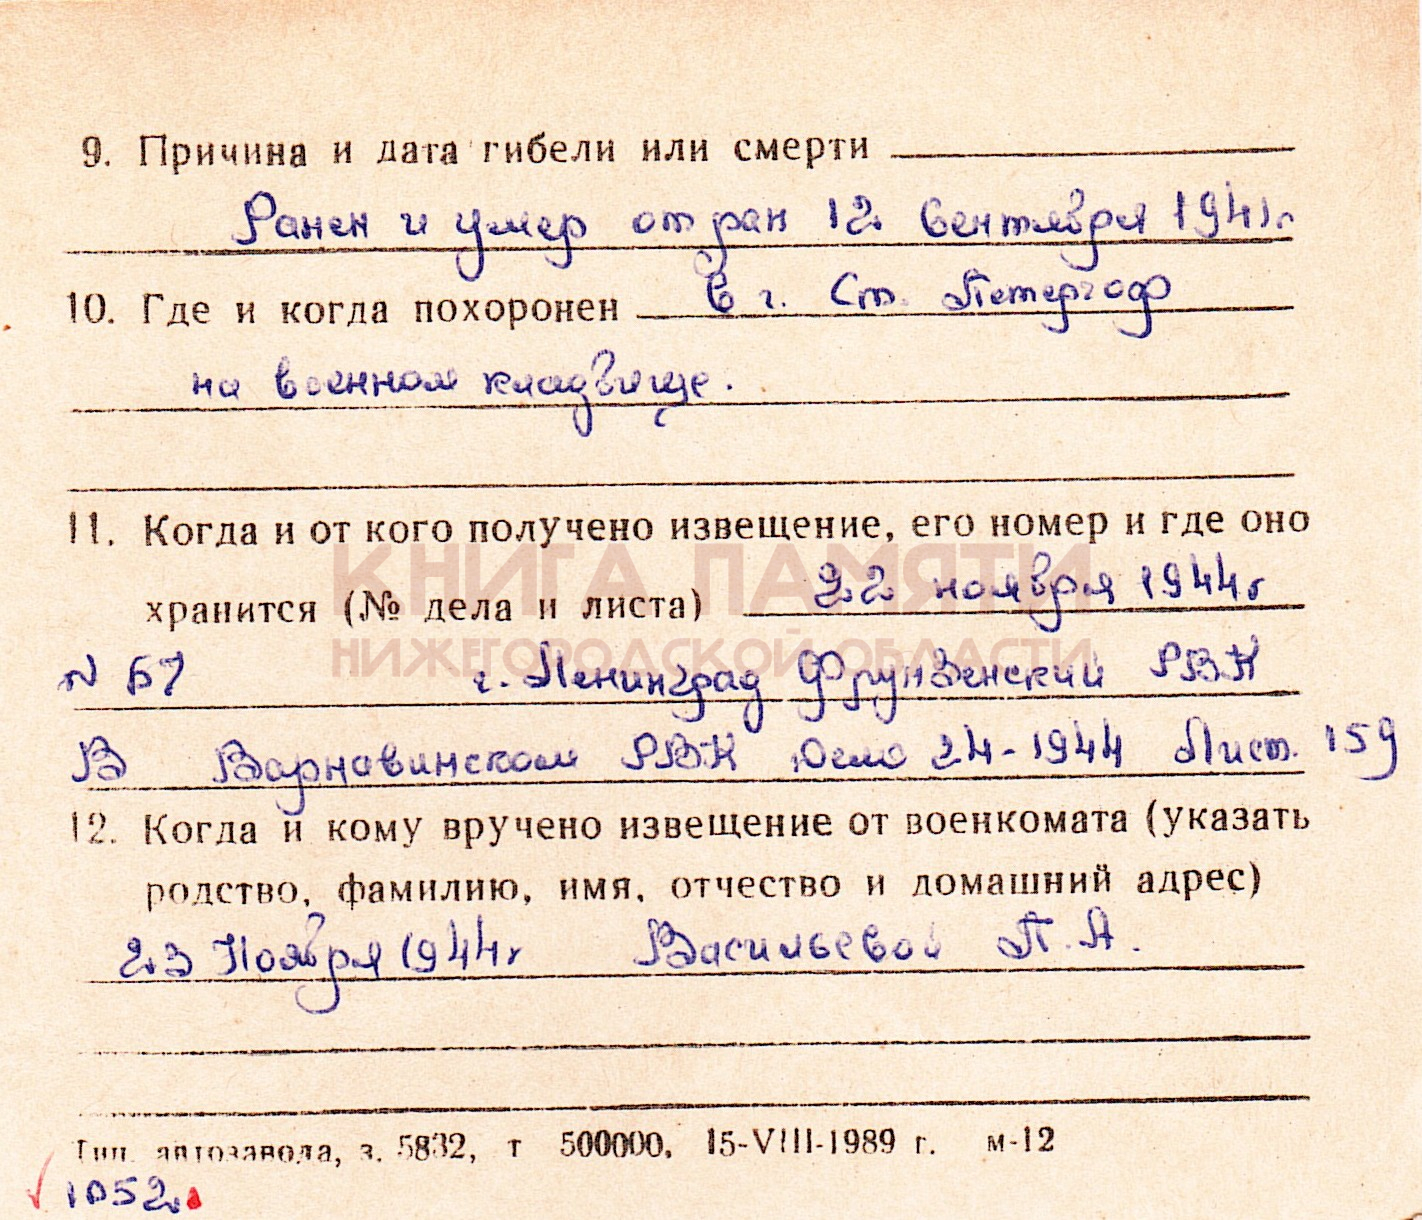 9. Причина и дата гибели или смерти
Ранен и умер от ран 12 Сентября 1941г
10. Где и когда похоронен в г. Ст. Петергоф
на военном кладбище.
11. Когда и от кого получено извещение, его номер и где оно
КНИГА ПАМЯТИ
хранится (№ дела и листа) 22 ноября 1944г
НИЖЕГОРОДСКОЙ ОБЛАСТИ
N 67 г. Ленинград Фрунзенский РВК
В Варнавинском РВК Дело 24-1944 Лист. 159
12. Когда и кому вручено извещение от военкомата (указать
родство, фамилию, имя, отчество и домашний адрес)
23 Ноября 1944г Васильевой П.А.
Тип. автозавода, з. 5832, т 500000, 15-VIII-1989 г. м-12
1052